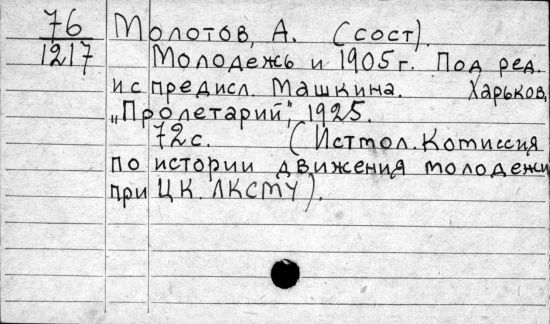 76 Молотов, А. (сост).
1217 Молодежь и 1905 г. Под ред.
и с предисл. Машкина. Харьков,
„Пролетарий", 1925.
72 с. (Истмол. Комиссия
по истории движения молодежи
при ЦК. ЛКСМУ).